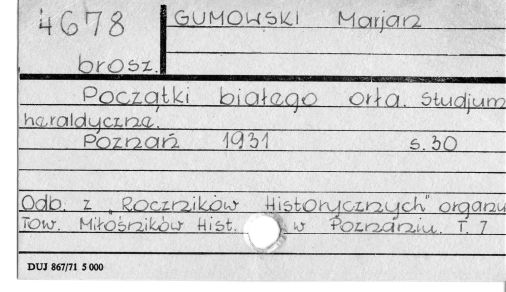 4678
GUMOWSKI Marjan
brosz.
Początki białego orła. Studjum
heraldyczne.
Poznań 1931 s.30
Odb. z „Roczników Historycznych" organu
Tow. Miłośników Hist. w Poznaniu. T. 7
DUJ 867/71 5 000